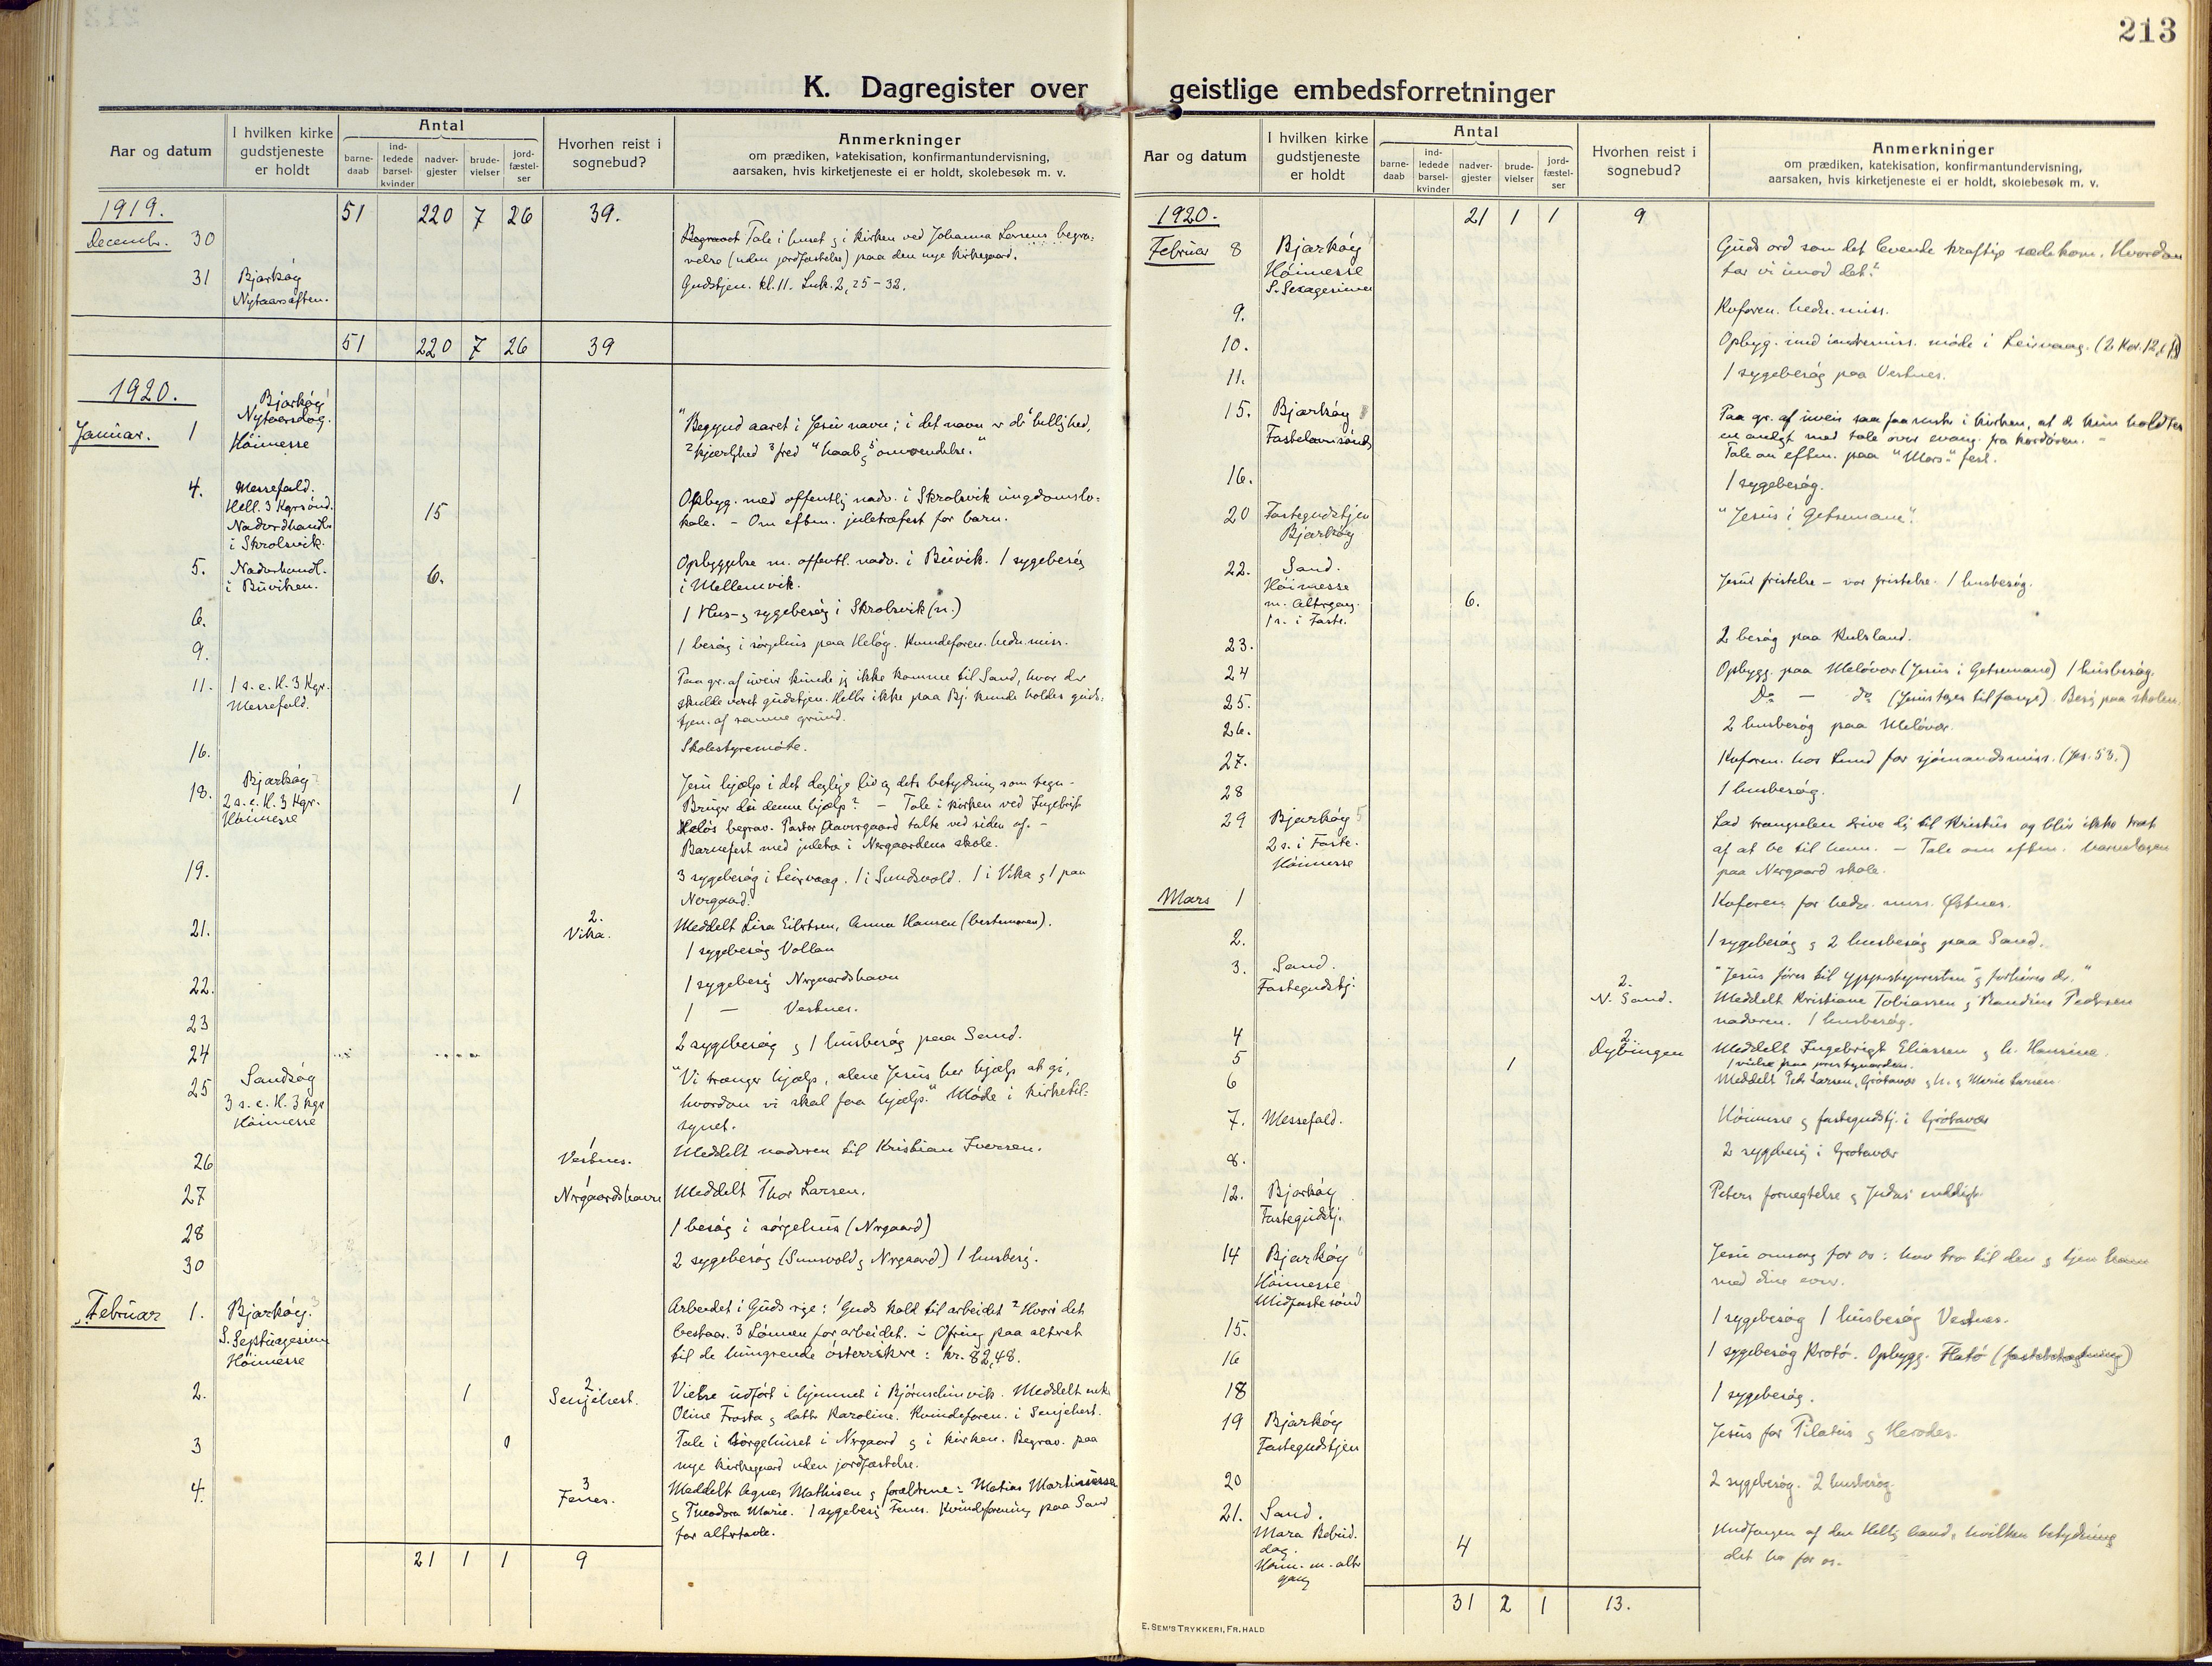 213
K. Dagregister over
geistlige embedsforretninger
Aar og datum
I hvilken kirke gudstjeneste er holdt
Antal
barne-daab
ind-ledede barsel-kvinder
nadver-gjester
brude-vielser
jord-fæstel-ser
Hvorhen reist i sognebud?
Anmerkninger
om prædiken, katekisation, konfirmantundervisning,
aarsaken, hvis kirketjeneste ei er holdt, skolebesøk m. v.
1919. 51 220 7 26 39.
Decembr. 30 Begravet Tale i huset g i kirken ved Johanna Larsens begra-
velse (uden jordfæstelse) paa den nye kirkegaard.
31 Bjarkøy Gudstjen. kl. 11. Luk. 2, 25-32.
Nytaarsaften.
51 220 7 26 39
1920.
Bjarkøy
Nytaarsdag.
Januar. 1 Høimesse
"Begynd aaret i Jesu navn; i det navn er der ¹hellighed,
²kjærlighed ³fred ⁴haab g ⁵omvendelse."
4. Messefald.
Hell. 3 Kgrsønd.
Nadverdhandl.
i Skrolsvik.
15 Opbyg. med offentlig nadv. i Skrolsvik ungdomslo-
kale. - Om eftm. juletræfest for barn.
5. Nadverhandl.
i Buviken.
6. Opbyggelse m. offentl. nadv. i Buvik. 1 sygebesøg
i Mellemvik.
6. 1 Hus- g sygebesøg i Skrolsvik (n.)
9. 1 besøg i sørgehus paa Heløg. Kvindeforen. hedn. miss.
11. 1 s. e. H. 3 Kgr.
Messefald.
Paa gr. af uveir kunde jeg ikke komme til Sand, hvor der
skulde været gudstjen. Heller ikke paa Bj. kunde holdes guds-
tjen. af samme grund.
16. Skolestyremøte.
18. Bjarkøy
2 s. e. H. 3 Kgr.
Høimesse
1 Jesu hjælp i det daglige liv og dets betydning som tegn -
Bruger du denne hjælp? - Tale i kirken ved Ingebrigt
Heløs begrav. Pastor Aavirgaard talte ved siden af. -
Barnefest med juletræ i Nergaardens skole.
19. 3 sygebesøg i Leirvaag. 1 i Sundsvold. 1 i Vika g 1 paa
Nergaard.
21. 2. Vika. Meddelt Lisa Eilertsen, Anna Hansen (bestemoren).
1 sygebesøg Vollan
22. 1 sygebesøg Nergaardshavn
23 1 - Vestnes.
24 2 sygebesøg g 1 husbesøg paa Sand.
25 Sandsøg
3 s. e. H. 3 kgr
Høimesse
"Vi trænger hjælp, alene Jesus har hjælp at gi,
hvordan vi skal faa hjælp." Møde i kirketil-
synet.
26 1 Vestnes. Meddelt nadveren til Kristian Iversen.
27 1 Nergaardshavn Meddelt Thor Larsen.
28 1 besøg i sørgehus (Nergaard)
30 2 sygebesøg (Sunsvold g Nergaard) 1 husbesøg.
Februar 1. Bjarkøy.
S. Septuagesima
Høimesse
Arbeidet i Guds rige: ¹Guds kald til arbeidet ²Hvori det
bestaar. ³Lønnen for arbeidet. - Ofring paa altret
til de hungrende østerrikere: kr. 82,48.
2. 1 2. Senjehest. Vielse udført i hjemmet i Bjørnehimvik. Meddelt enke
Oline Frosta g datter Karoline. Kvindeforen. i Senjehest.
3 0 Tale i sørgehuset i Nergaard g i kirken. Begrav. paa
nye kirkegaard uden jordfæstelse.
4. 3 Fenes. Meddelt Agnes Mathisen g forældrene: Matias Martinussen
g Theodora Marie. 1 sygebesøg Fenes. Kvindeforening paa Sand
for altertavle.
21 1 1 9
Aar og datum
I hvilken kirke gudstjeneste er holdt
Antal
barne-daab
ind-ledede barsel-kvinder
nadver-gjester
brude-vielser
jord-fæstel-ser
Hvorhen reist i sognebud?
Anmerkninger
om prædiken, katekisation, konfirmantundervisning,
aarsaken, hvis kirketjeneste ei er holdt, skolebesøk m. v.
1920. 21 1 1 9
Februar 8 Bjarkøy
Høimesse
S. Sexagesima
Guds ord som det levende kraftige sædekorn. Hvordan
tar vi imod det?
9. Kvforen. hedn. miss.
10. Opbyg. med indremiss. møde i Leirvaag. (2 Kor. 12,
11. 1 sygebesøg paa Vestnes.
15. Bjarkøy
Fastelavnsønd.
Paa gr. af uveir saa faa msk. i kirken, at der kun holdtes
en andgt med tale over evang. fra kordøren. -
Tale om eftm. paa "Mors" fest.
16. 1 sygebesøg.
20 Fastegudstjen
Bjarkøy
"Jesus i Getsemane".
22. Sand.
Høimesse
m. Altrgang.
1 s. i Faste.
6. Jesu fristelse - vor fristelse. 1 husbesøg.
23. 2 besøg paa Kulsland.
24 Opbygg. paa Meløvær (Jesus i Getsemane) 1 husbesøg.
25. Do - do (Jesus tages til fange). Besøg paa skolen.
26. 2 husbesøg paa Meløvær.
27. Kvforen. hos Lund for sjømandsmiss. (Jes. 53.)
28 1 husbesøg.
29 Bjarkøy
2 s. i Faste.
Høimesse
Lad trængselen drive dig til Kristus og bliv ikke træt
af at be til ham. - Tale om eftm. barnelagen
paa Nergaard skole.
Mars 1 Kvforen for hedn. miss. Østnes.
2. 1 sygebesøg g 2 husbesøg paa Sand.
3. Sand.
Fastegudstj.
2. N. Sand.
"Jesus føres til ypperstepresten g forhøres der."
Meddelt Kristiane Tobiassen g Randine Pedersen
nadveren. 1 husbesøg.
4 2 Dybingen Meddelt Ingebrigt Eliassen g h. Hansine.
5 1 1 vielse paa prestegaarden.
6 Meddelt Peder Larsen, Grøtavær g h. g Marie Larsen
7. Messefald. Høimesse g fastegudstj. i Grøtavær
8. 2 sygebesøg i Grøtavær
12. Bjarkøy
Fastegudstj.
Peters fornegtelse g Judas' endeligt.
14 Bjarkøy
Høimesse
Midfastesønd
Jesu omsorg for os: hav tro til den g tjen ham
med dine evner.
15. 1 sygebesøg 1 husbesøg Vestnes.
16 1 sygebesøg Krotø. Opbygg. Flatø (fastebetragtning)
18 1 sygebesøg.
19 Bjarkøy
Fastegudstjen
Jesus for Pilatus g Herodes.
20 2 sygebesøg. 2 husbesøg.
21. Sand.
Mara Bebud.
dag.
Høim. m. altr
gang
4 Undfangen af den Hellig aand, hvilken betydning
det har for os.
31 2 1 13.
E. SEM'S TRYKKERI, FR.HALD